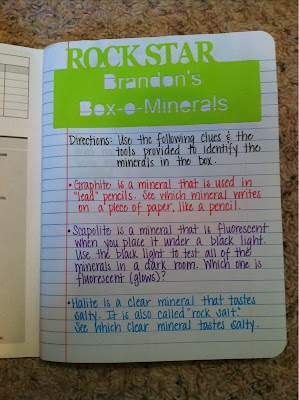 ROCK STAR
Brandon's
Box-o-Minerals
Directions: Use the following clues & the
tools provided to identify the
minerals in the box.
• Graphite is a mineral that is used in
"lead" pencils. See which mineral writes
on a piece of paper, like a pencil.
• Scapolite is a mineral that is fluorescent
when you place it under a black light.
Use the black light to test all of the
minerals in a dark room. Which one is
fluorescent (glows)?
• Halite is a clear mineral that tastes
salty. It is also called "rock salt."
See which clear mineral tastes salty.